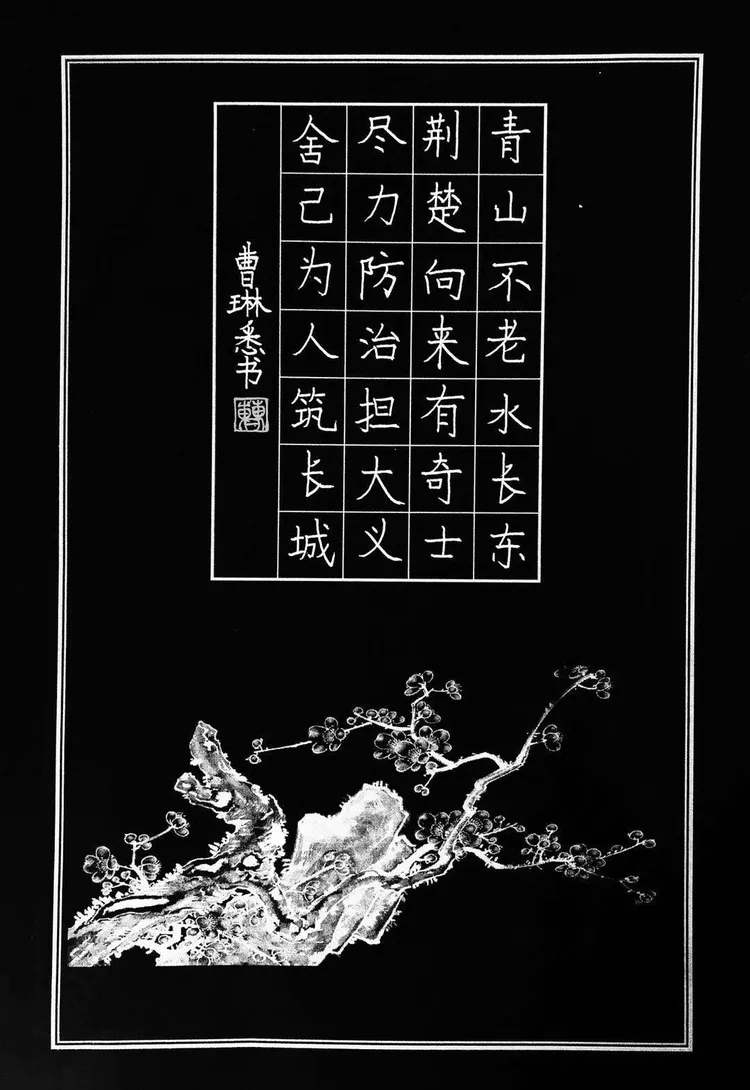 青山不老水长东
荆楚向来有奇士
尽力防治担大义
舍己为人筑长城
曹琳悉书